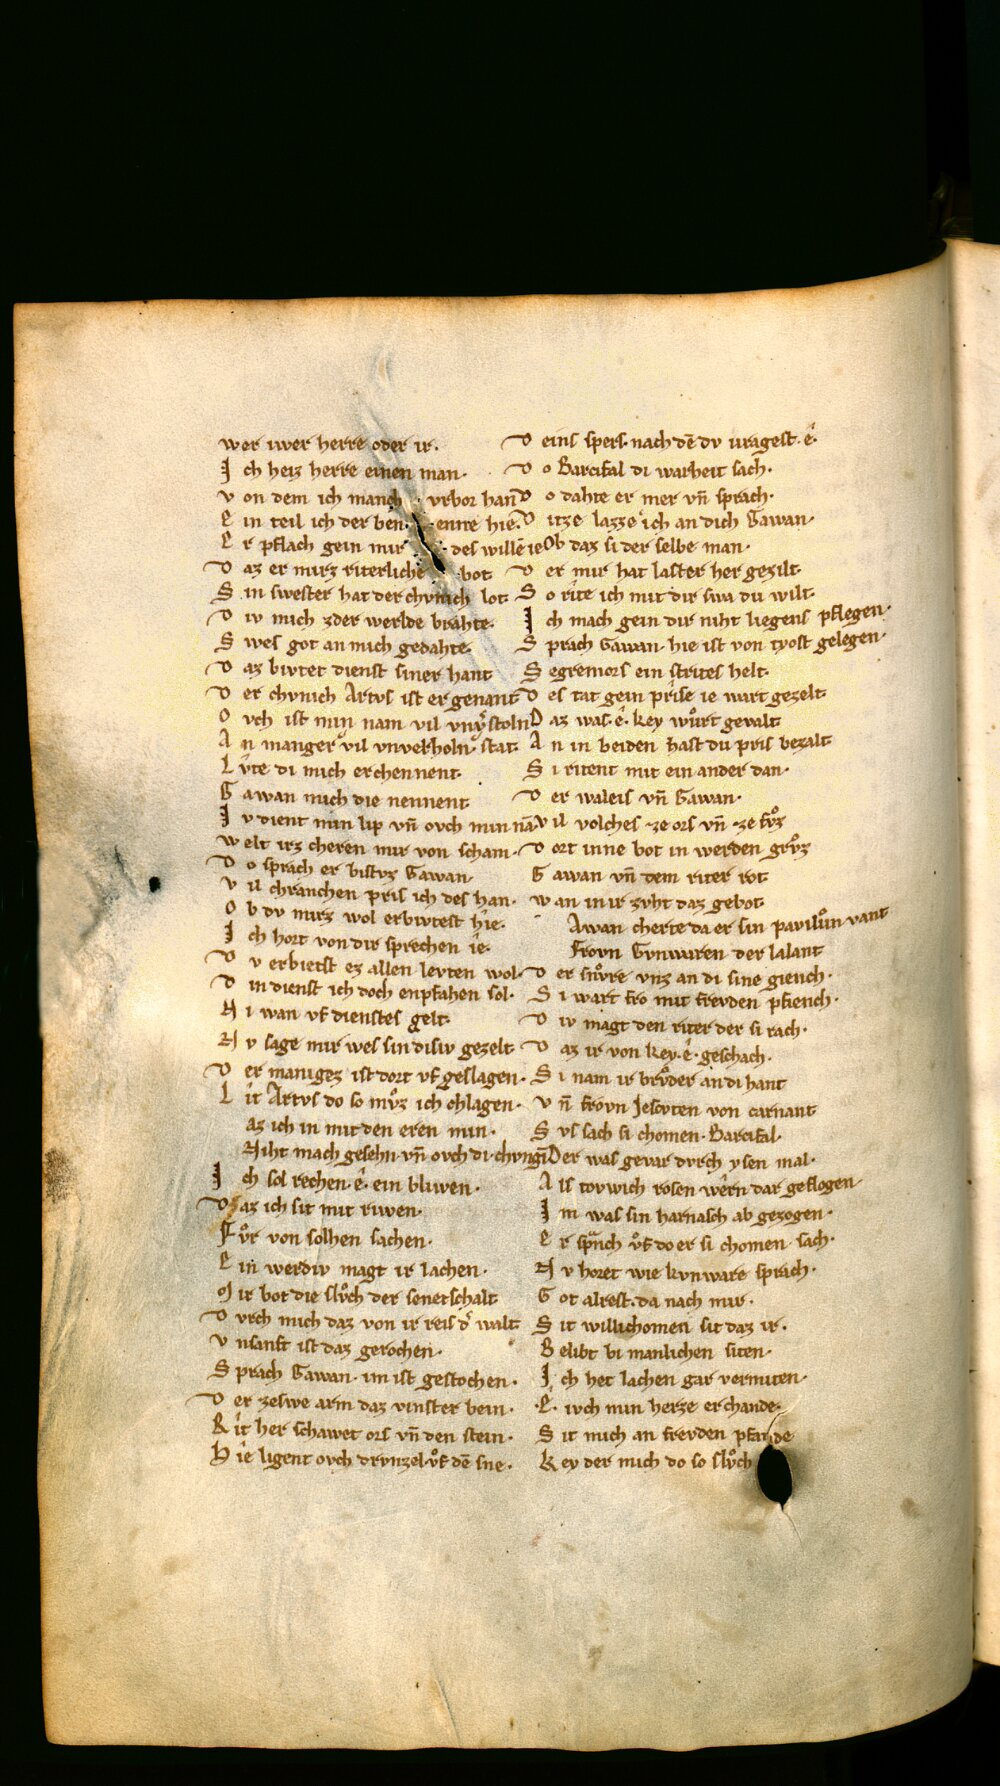 wer iwer herre oder ir·
I ch heiz herre einen man·
v on dem ich manch urbor han
E in teil ich der ben· enne hie·
E r pflach gein mir des willē ie
D az er mirz riterliche bot
S in swester hat der chvnich lot
D iv mich zder werlde brahte·
S wes got an mich gedahte·
D az bivtet dienst siner hant
D er chvnich Artvs ist er genant
O vch ist min nam vil vnv̾stoln
A n manger vil vnverholn· stat·
L v̂te di mich erchennent·
G awan mich die nennent
I v dient min lip vn̄ ovch min nā
w elt irz cheren mir von scham·
D o sprach er bistvz Gawan·
v il chranchen pris ich des han·
O b dv mirz wol erbivtest hîe·
I ch hort von dir sprechen îe·
D v erbietst ez allen levten wol·
D in dienst ich doch enpfahen sol·
N i wan vf dienstes gelt·
N v sage mir wes sin disiv gezelt
D er manigez ist dort vf geslagen·
L ît Artvs do so mvͦz ich chlagen·
az ich in mit den eren min·
Niht mach gesehn· vn̄ ovch di· chvngī
I ch sol rechen· ê· ein bliwen·
D az ich sit mit riwen·
F vͦr von solhen sachen·
E in werdiv magt ir lachen·
M ir bot die slvͦch der senetschalt
D vrch mich daz von ir reis d̾ walt
v nsanft ist daz gerochen·
S prach Gawan· im ist gestochen·
D er zeswe arm daz vinster bein·
R ît her schawet ors vn̄ den stein·
H îe ligent ovch drvnzel vͦf dē sne·
D eins spers· nach dē dv vragest· ê·
D o Barcifal di warheit sach·
D o dahte er mer vn̄ sprach·
D itze lazze ich an dich Gawan·
Ob daz si der selbe man·
D er mir hat laster her gezilt·
S o rîte ich mit dir swa du wilt·
I ch mach gein dir niht liegens pflegen·
S prach Gawan· hie ist von tyost gelegen·
S egremors ein strites helt·
D es tat gein prîse ie wart gezelt
D az was· ê· key wuͦrt gevalt
A n in beiden hast du pris bezalt·
S i ritent mit ein ander dan·
D er waleis vn̄ Gawan·
v il volches ze ors vn̄ ze fvͦz
D ort inne bot in werden grvͦz
G awan vn̄ dem riter rot
w an in ir zvht daz gebot·
Awan cherte da er sin paviluͦn vant
Frovn Gvnwaren der lalant
D er snvͦre vnz an di sine giench·
S i wart fro mit frevden pfiench·
D iv magt den riter der si rach·
D az ir von key· ê· geschach·
S i nam ir brvͦder an di hant
v n̄ frovn Jescvten von carnant
S vs sach si chomen· Barcifal·
Der was gevar dvrch ysen mal·
A ls tovwich rosen wêrn dar geflogen
I m was sin harnasch ab gezogen·
E r spranch vͦf do er si chomen sach·
N v horet wie kvnware sprach·
G ot alrest· da nach mir·
S it willichomen sit daz ir·
B elibt bi manlichen siten·
I ch het lachen gar vermiten·
E· iwch min herze erchande·
S it mich an frevden pfande
K ey der mich do so slvͦch